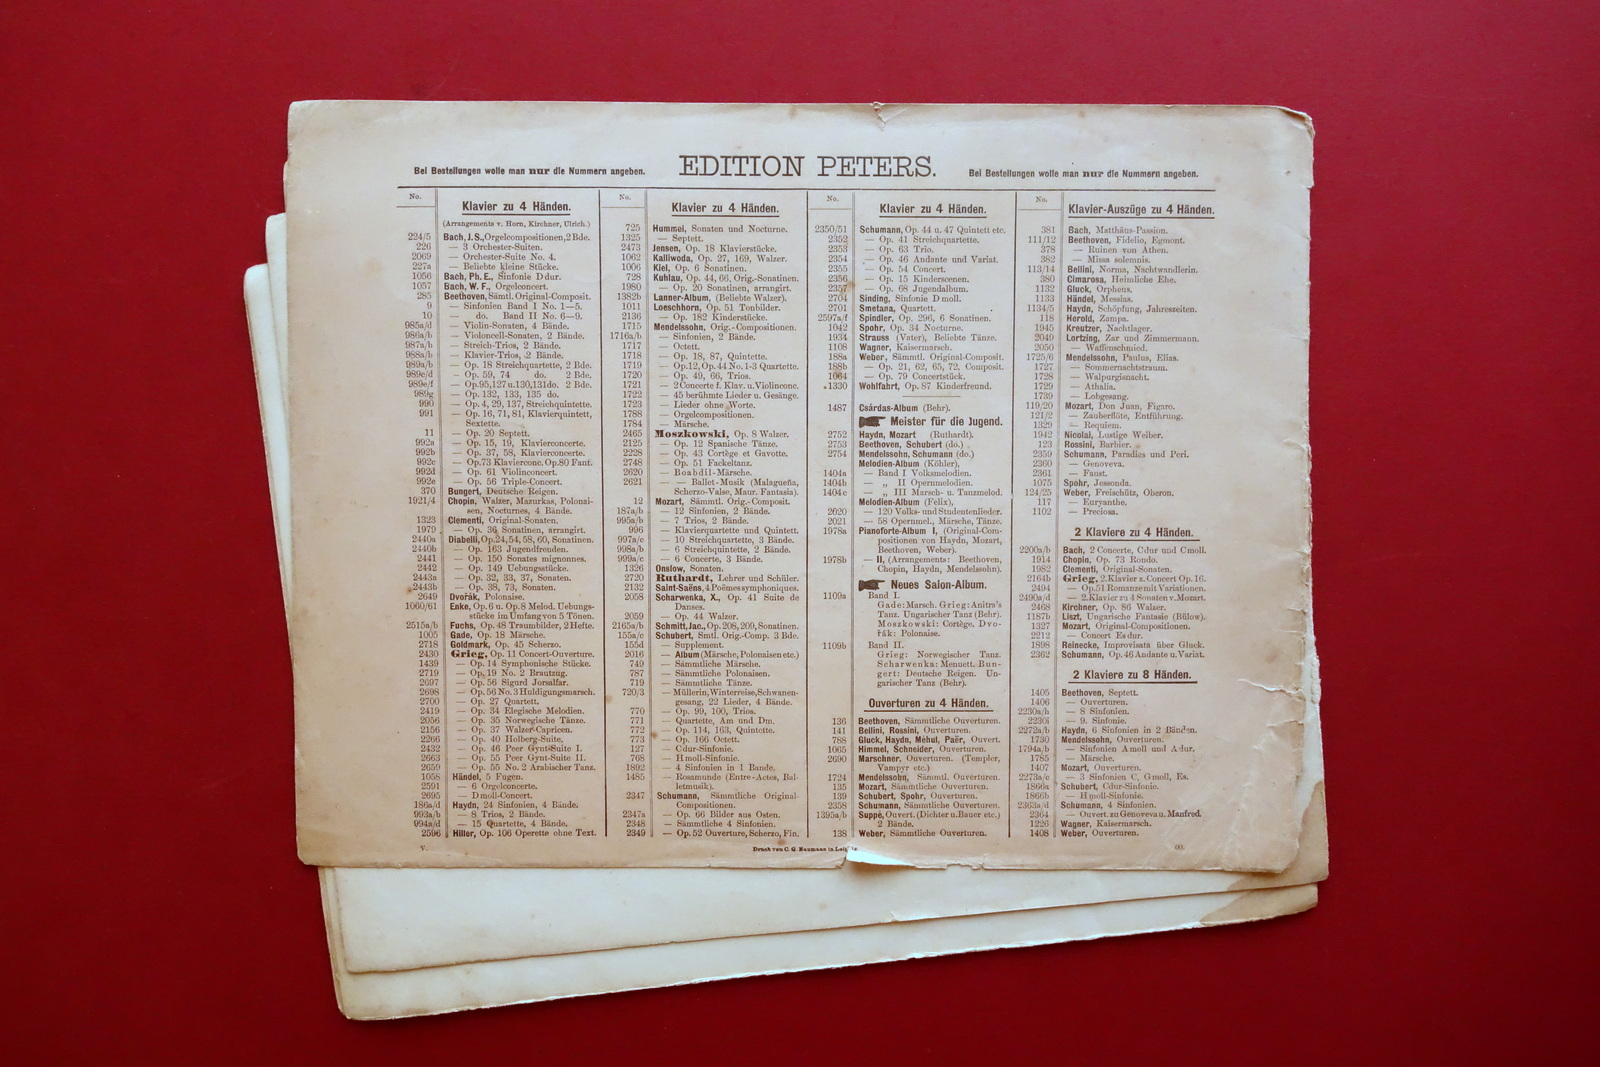 Bei Bestellungen wolle man nur die Nummern angeben.
EDITION PETERS.
Bei Bestellungen wolle man nur die Nummern angeben.
No.
Klavier zu 4 Händen.
(Arrangements v. Horn, Kirchner, Ulrich.)
224/5 Bach, J. S., Orgelcompositionen, 2 Bde.
226 — 3 Orchester-Suiten.
2069 — Orchester-Suite No. 4.
227a — Beliebte kleine Stücke.
1056 Bach, Ph. E., Sinfonie D dur.
1057 Bach, W. F., Orgelconcert.
285 Beethoven, Sämtl. Original-Composit.
9 — Sinfonien Band I No. 1—5.
10 — do. Band II No. 6—9.
985a/d — Violin-Sonaten, 4 Bände.
986a/b — Violoncell-Sonaten, 2 Bände.
987a/b — Streich-Trios, 2 Bände.
988a/b — Klavier-Trios, 2 Bände.
989a/b — Op. 18 Streichquartette, 2 Bde.
989c/d — Op. 59, 74 do. 2 Bde.
989e/f — Op. 95, 127 u. 130, 131 do. 2 Bde.
989g — Op. 132, 133, 135 do.
990 — Op. 4, 29, 137, Streichquintette.
991 — Op. 16, 71, 81, Klavierquintett,
Sextette.
11 — Op. 20 Septett.
992a — Op. 15, 19, Klavierconcerte.
992b — Op. 37, 58, Klavierconcerte.
992c — Op. 73 Klavierconc. Op. 80 Fant.
992d — Op. 61 Violinconcert.
992e — Op. 56 Triple-Concert.
370 Bungert, Deutsche Reigen.
1921/4 Chopin, Walzer, Mazurkas, Polonai-
sen, Nocturnes, 4 Bände.
1323 Clementi, Original-Sonaten.
1979 — Op. 36 Sonatinen, arrangirt.
2440a Diabelli, Op. 24, 54, 58, 60, Sonatinen.
2440b — Op. 163 Jugendfreuden.
2441 — Op. 150 Sonates mignonnes.
2442 — Op. 149 Uebungsstücke.
2443a — Op. 32, 33, 37, Sonaten.
2443b — Op. 38, 73, Sonaten.
2649 Dvořák, Polonaise.
1060/61 Enke, Op. 6 u. Op. 8 Melod. Uebungs-
stücke im Umfang von 5 Tönen.
2515a/b Fuchs, Op. 48 Traumbilder, 2 Hefte.
1005 Gade, Op. 18 Märsche.
2718 Goldmark, Op. 45 Scherzo.
2430 Grieg, Op. 11 Concert-Ouverture.
1439 — Op. 14 Symphonische Stücke.
2719 — Op. 19 No. 2 Brautzug.
2697 — Op. 56 Sigurd Jorsalfar.
2698 — Op. 56 No. 3 Huldigungsmarsch.
2700 — Op. 27 Quartett.
2419 — Op. 34 Elegische Melodien.
2056 — Op. 35 Norwegische Tänze.
2156 — Op. 37 Walzer-Capricen.
2266 — Op. 40 Holberg-Suite.
2432 — Op. 46 Peer Gynt-Suite I.
2663 — Op. 55 Peer Gynt-Suite II.
2659 — Op. 55 No. 2 Arabischer Tanz.
1058 Händel, 5 Fugen.
2591 — 6 Orgelconcerte.
2695 — D moll-Concert.
186a/d Haydn, 24 Sinfonien, 4 Bände.
993a/b — 8 Trios, 2 Bände.
994a/d — 15 Quartette, 4 Bände.
2596 Hiller, Op. 106 Operette ohne Text.
No.
Klavier zu 4 Händen.
725 Hummel, Sonaten und Nocturne.
1325 — Septett.
2473 Jensen, Op. 18 Klavierstücke.
1062 Kalliwoda, Op. 27, 169, Walzer.
1006 Kiel, Op. 6 Sonatinen.
728 Kuhlau, Op. 44, 66, Orig.-Sonatinen.
1980 — Op. 20 Sonatinen, arrangirt.
1382b Lanner-Album, (Beliebte Walzer).
1011 Loeschhorn, Op. 51 Tonbilder.
2136 — Op. 182 Kinderstücke.
1715 Mendelssohn, Orig.-Compositionen.
1716a/b — Sinfonien, 2 Bände.
1717 — Octett.
1718 — Op. 18, 87, Quintette.
1719 — Op. 12, Op. 44 No. 1-3 Quartette.
1720 — Op. 49, 66, Trios.
1721 — 2 Concerte f. Klav. u. Violinconc.
1722 — 45 berühmte Lieder u. Gesänge.
1723 — Lieder ohne Worte.
1788 — Orgelcompositionen.
1784 — Märsche.
2465 Moszkowski, Op. 8 Walzer.
2125 — Op. 12 Spanische Tänze.
2228 — Op. 43 Cortège et Gavotte.
2748 — Op. 51 Fackeltanz.
2620 — Boabdil-Märsche.
2621 — — Ballet-Musik (Malagueña,
Scherzo-Valse, Maur. Fantasia).
12 Mozart, Sämmtl. Orig.-Composit.
187a/b — 12 Sinfonien, 2 Bände.
995a/b — 7 Trios, 2 Bände.
996 — Klavierquartette und Quintett.
997a/c — 10 Streichquartette, 3 Bände.
998a/b — 6 Streichquintette, 2 Bände.
999a/c — 6 Concerte, 3 Bände.
1326 Onslow, Sonaten.
2720 Ruthardt, Lehrer und Schüler.
2132 Saint-Saëns, 4 Poëmes symphoniques.
2058 Scharwenka, X., Op. 41 Suite de
Danses.
2059 — Op. 44 Walzer.
2165a/b Schmitt, Jac., Op. 208, 209, Sonatinen.
155a/c Schubert, Smtl. Orig.-Comp. 3 Bde.
155d — Supplement.
2016 — Album (Märsche, Polonaisen etc.)
749 — Sämmtliche Märsche.
787 — Sämmtliche Polonaisen.
719 — Sämmtliche Tänze.
720/3 — Müllerin, Winterreise, Schwanen-
gesang, 22 Lieder, 4 Bände.
770 — Op. 99, 100, Trios.
771 — Quartette, Am und Dm.
772 — Op. 114, 163, Quintette.
773 — Op. 166 Octett.
127 — C dur-Sinfonie.
768 — H moll-Sinfonie.
1892 — 4 Sinfonien in 1 Bande.
1485 — Rosamunde (Entre-Actes, Bal-
letmusik).
2347 Schumann, Sämmtliche Original-
Compositionen.
2347a — Op. 66 Bilder aus Osten.
2348 — Sämmtliche 4 Sinfonien.
2349 — Op. 52 Ouverture, Scherzo, Fin.
No.
Klavier zu 4 Händen.
2350/51 Schumann, Op. 44 u. 47 Quintett etc.
2352 — Op. 41 Streichquartette.
2353 — Op. 63 Trio.
2354 — Op. 46 Andante und Variat.
2355 — Op. 54 Concert.
2356 — Op. 15 Kinderscenen.
2357 — Op. 68 Jugendalbum.
2704 Sinding, Sinfonie D moll.
2701 Smetana, Quartett.
2597a/f Spindler, Op. 296, 6 Sonatinen.
1042 Spohr, Op. 34 Nocturne.
1934 Strauss (Vater), Beliebte Tänze.
1108 Wagner, Kaisermarsch.
188a Weber, Sämmtl. Original-Composit.
188b — Op. 21, 62, 65, 72, Composit.
1064 — Op. 79 Concertstück.
1330 Wohlfahrt, Op. 87 Kinderfreund.
1487 Csárdas-Album (Behr).
Meister für die Jugend.
2752 Haydn, Mozart (Ruthardt).
2753 Beethoven, Schubert (do.)
2754 Mendelssohn, Schumann (do.)
Melodien-Album (Köhler),
1404a — Band I Volksmelodien.
1404b — „ II Opernmelodien.
1404c — „ III Marsch- u. Tanzmelod.
Melodien-Album (Felix),
2020 — 120 Volks- und Studentenlieder.
2021 — 58 Opernmel., Märsche, Tänze.
1978a Pianoforte-Album I, (Original-Com-
positionen von Haydn, Mozart,
Beethoven, Weber).
1978b — II, (Arrangements: Beethoven,
Chopin, Haydn, Mendelssohn).
Neues Salon-Album.
1109a Band I.
Gade: Marsch. Grieg: Anitra's
Tanz. Ungarischer Tanz (Behr).
Moszkowski: Cortège. Dvo-
řák: Polonaise.
1109b Band II.
Grieg: Norwegischer Tanz.
Scharwenka: Menuett. Bun-
gert: Deutsche Reigen. Un-
garischer Tanz (Behr).
Ouverturen zu 4 Händen.
136 Beethoven, Sämmtliche Ouverturen.
141 Bellini, Rossini, Ouverturen.
788 Gluck, Haydn, Méhul, Paër, Ouvert.
1065 Himmel, Schneider, Ouverturen.
2690 Marschner, Ouverturen. (Templer,
Vampyr etc.)
1724 Mendelssohn, Sämmtl. Ouverturen.
135 Mozart, Sämmtliche Ouverturen.
139 Schubert, Spohr, Ouverturen.
2358 Schumann, Sämmtliche Ouverturen.
1395a/b Suppé, Ouvert. (Dichter u. Bauer etc.)
2 Bände.
138 Weber, Sämmtliche Ouverturen.
No.
Klavier-Auszüge zu 4 Händen.
381 Bach, Matthäus-Passion.
111/12 Beethoven, Fidelio, Egmont.
378 — Ruinen von Athen.
382 — Missa solemnis.
113/14 Bellini, Norma, Nachtwandlerin.
380 Cimarosa, Heimliche Ehe.
1132 Gluck, Orpheus.
1133 Händel, Messias.
1134/5 Haydn, Schöpfung, Jahreszeiten.
118 Herold, Zampa.
1945 Kreutzer, Nachtlager.
2049 Lortzing, Zar und Zimmermann.
2050 — Waffenschmied.
1725/6 Mendelssohn, Paulus, Elias.
1727 — Sommernachtstraum.
1728 — Walpurgisnacht.
1729 — Athalia.
1739 — Lobgesang.
119/20 Mozart, Don Juan, Figaro.
121/2 — Zauberflöte, Entführung.
1329 — Requiem.
1942 Nicolai, Lustige Weiber.
123 Rossini, Barbier.
2359 Schumann, Paradies und Peri.
2360 — Genoveva.
2361 — Faust.
1075 Spohr, Jessonda.
124/25 Weber, Freischütz, Oberon.
117 — Euryanthe.
1102 — Preciosa.
2 Klaviere zu 4 Händen.
2200a/b Bach, 2 Concerte, C dur und C moll.
1914 Chopin, Op. 73 Rondo.
1982 Clementi, Original-Sonaten.
2164b Grieg, 2. Klavier z. Concert Op. 16.
2494 — Op. 51 Romanze mit Variationen.
2490a/d — 2. Klavier zu 4 Sonaten v. Mozart.
2468 Kirchner, Op. 86 Walzer.
1187b Liszt, Ungarische Fantasie (Bülow).
1327 Mozart, Original-Compositionen.
2212 — Concert Es dur.
1898 Reinecke, Improvisata über Gluck.
2362 Schumann, Op. 46 Andante u. Variat.
2 Klaviere zu 8 Händen.
1405 Beethoven, Septett.
1406 — Ouverturen.
2230a/h — 8 Sinfonien.
2230i — 9. Sinfonie.
2272a/b Haydn, 6 Sinfonien in 2 Bänden.
1730 Mendelssohn, Ouverturen.
1794a/b — Sinfonien A moll und A dur.
1785 — Märsche.
1407 Mozart, Ouverturen.
2273a/c — 3 Sinfonien C, G moll, Es.
1866a Schubert, C dur-Sinfonie.
1866b — H moll-Sinfonie.
2363a/d Schumann, 4 Sinfonien.
2364 — Ouvert. zu Genoveva u. Manfred.
1226 Wagner, Kaisermarsch.
1408 Weber, Ouverturen.
V.
Druck von C. G. Naumann in
00.